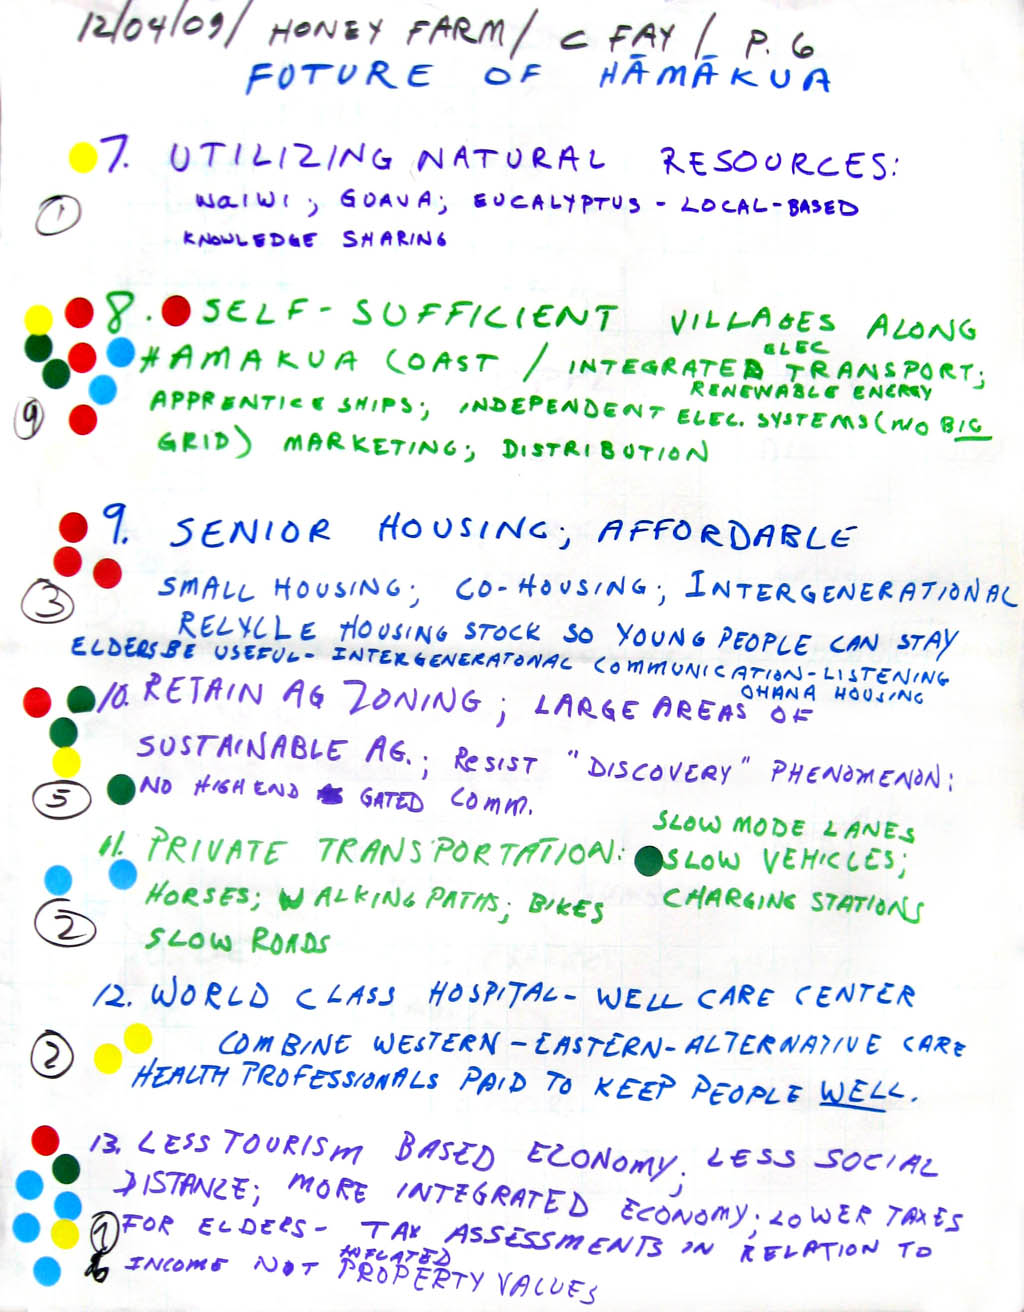 12/04/09/ HONEY FARM/ C FAY / P. 6
FUTURE OF HĀMĀKUA
7. UTILIZING NATURAL RESOURCES:
1
WAIWI; GUAVA; EUCALYPTUS - LOCAL-BASED
KNOWLEDGE SHARING
8. SELF-SUFFICIENT VILLAGES ALONG
HAMAKUA COAST / INTEGRATED ELEC TRANSPORT;
RENEWABLE ENERGY
9
APPRENTICESHIPS; INDEPENDENT ELEC. SYSTEMS (NO BIG
GRID) MARKETING; DISTRIBUTION
9. SENIOR HOUSING; AFFORDABLE
3
SMALL HOUSING; CO-HOUSING; INTERGENERATIONAL
RECYCLE HOUSING STOCK SO YOUNG PEOPLE CAN STAY
ELDERS BE USEFUL - INTERGENERATONAL COMMUNICATION - LISTENING
OHANA HOUSING
10. RETAIN AG ZONING; LARGE AREAS OF
SUSTAINABLE AG.; RESIST "DISCOVERY" PHENOMENON:
5
NO HIGH END GATED COMM.
11. PRIVATE TRANSPORTATION: SLOW MODE LANES
SLOW VEHICLES;
2
HORSES; WALKING PATHS; BIKES CHARGING STATIONS
SLOW ROADS
12. WORLD CLASS HOSPITAL - WELL CARE CENTER
2
COMBINE WESTERN - EASTERN - ALTERNATIVE CARE
HEALTH PROFESSIONALS PAID TO KEEP PEOPLE WELL.
13. LESS TOURISM BASED ECONOMY; LESS SOCIAL
DISTANCE; MORE INTEGRATED ECONOMY; LOWER TAXES
7
FOR ELDERS - TAX ASSESSMENTS IN RELATION TO
INCOME NOT INFLATED PROPERTY VALUES